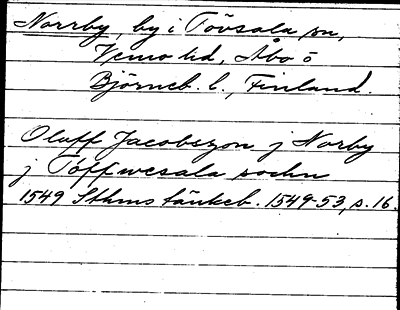 Norrby, by i Tövsala sn,
Vemo hd, Åbo o
Björneb. l., Finland.
Oluff Jacobszon j Norby
j Töffwesala sochn
1549 Sthms tänkeb. 1549-53, s. 16.